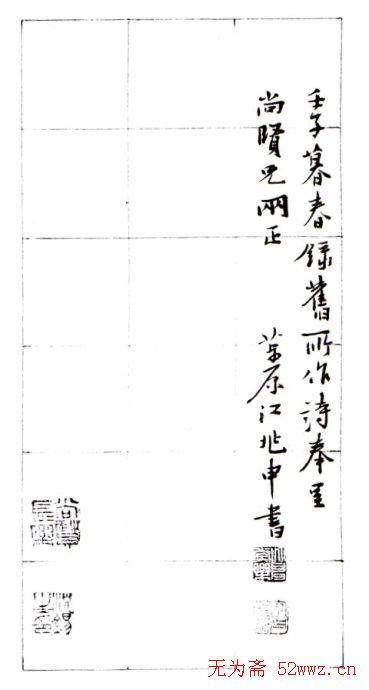 壬子暮春錄舊所作詩奉呈
尚賢兄兩正
茮原江兆申書
无为斋 52wwz.cn